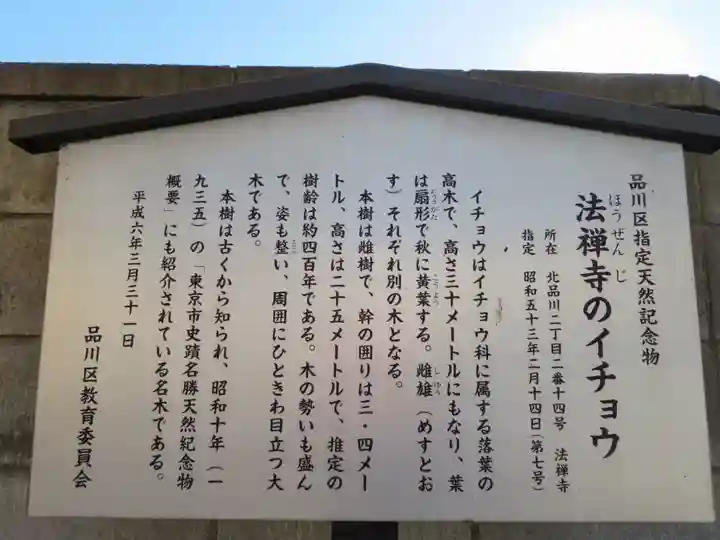 品川区指定天然記念物
法禅寺のイチョウ
ほうぜんじ
所在 北品川二丁目二番十四号 法禅寺
指定 昭和五十三年二月十四日(第七号)
イチョウはイチョウ科に属する落葉の
高木で、高さ三十メートルにもなり、葉
は扇形で秋に黄葉する。雌雄(めすとお
す)それぞれ別の木となる。
本樹は雌樹で、幹の囲りは三・四メー
トル、高さは二十五メートルで、推定の
樹齢は約四百年である。木の勢いも盛ん
で、姿も整い、周囲にひときわ目立つ大
木である。
本樹は古くから知られ、昭和十年(一
九三五)の「東京市史蹟名勝天然紀念物
概要」にも紹介されている名木である。
平成六年三月三十一日
品川区教育委員会